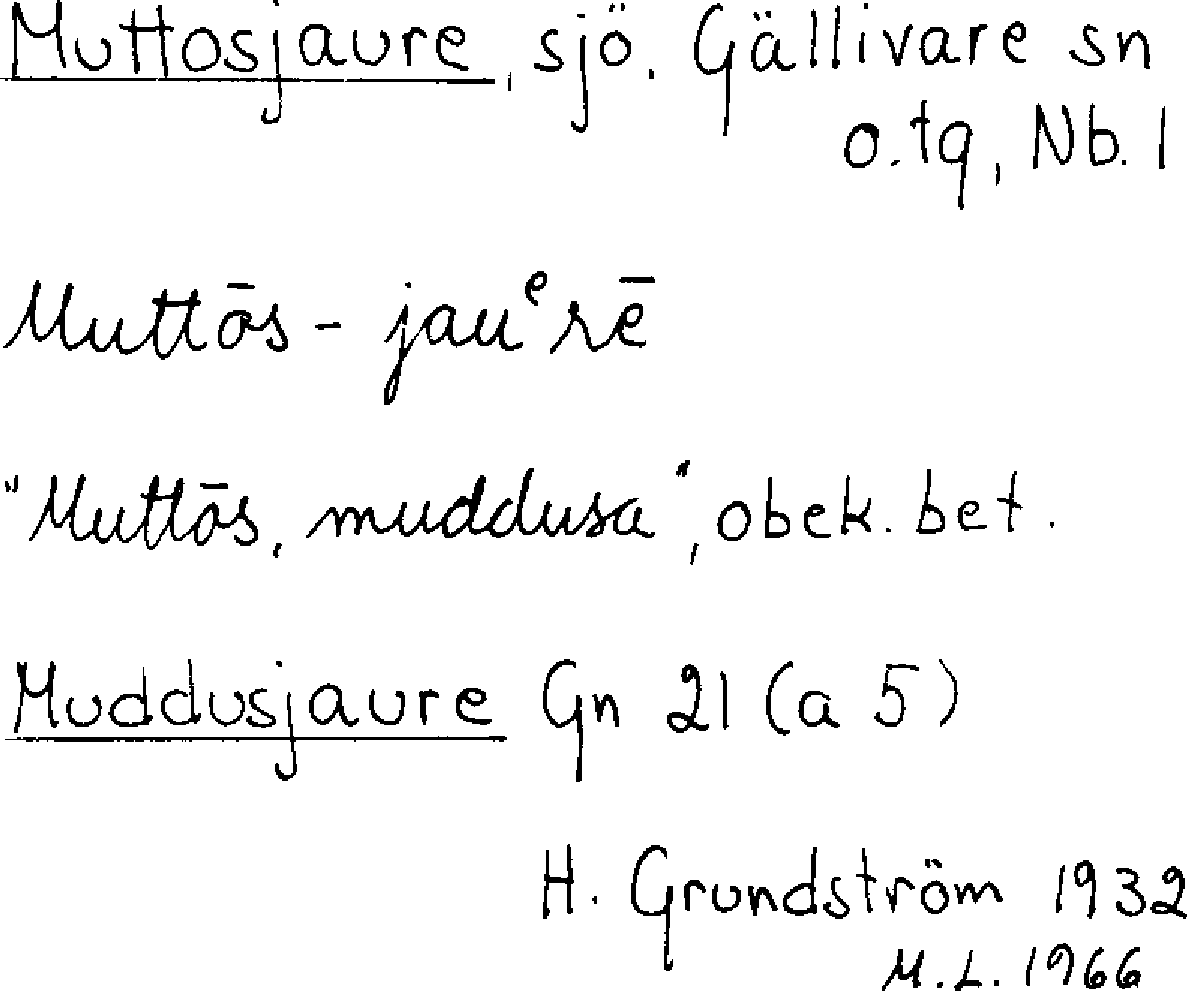 Muttosjaure, sjö. Gällivare sn
o. tg, Nb. l
Muttōs - jauᵉrē
"Muttōs, muddusa", obek. bet.
Muddusjaure Gn 21 (a 5)
H. Grundström 1932
M.L. 1966